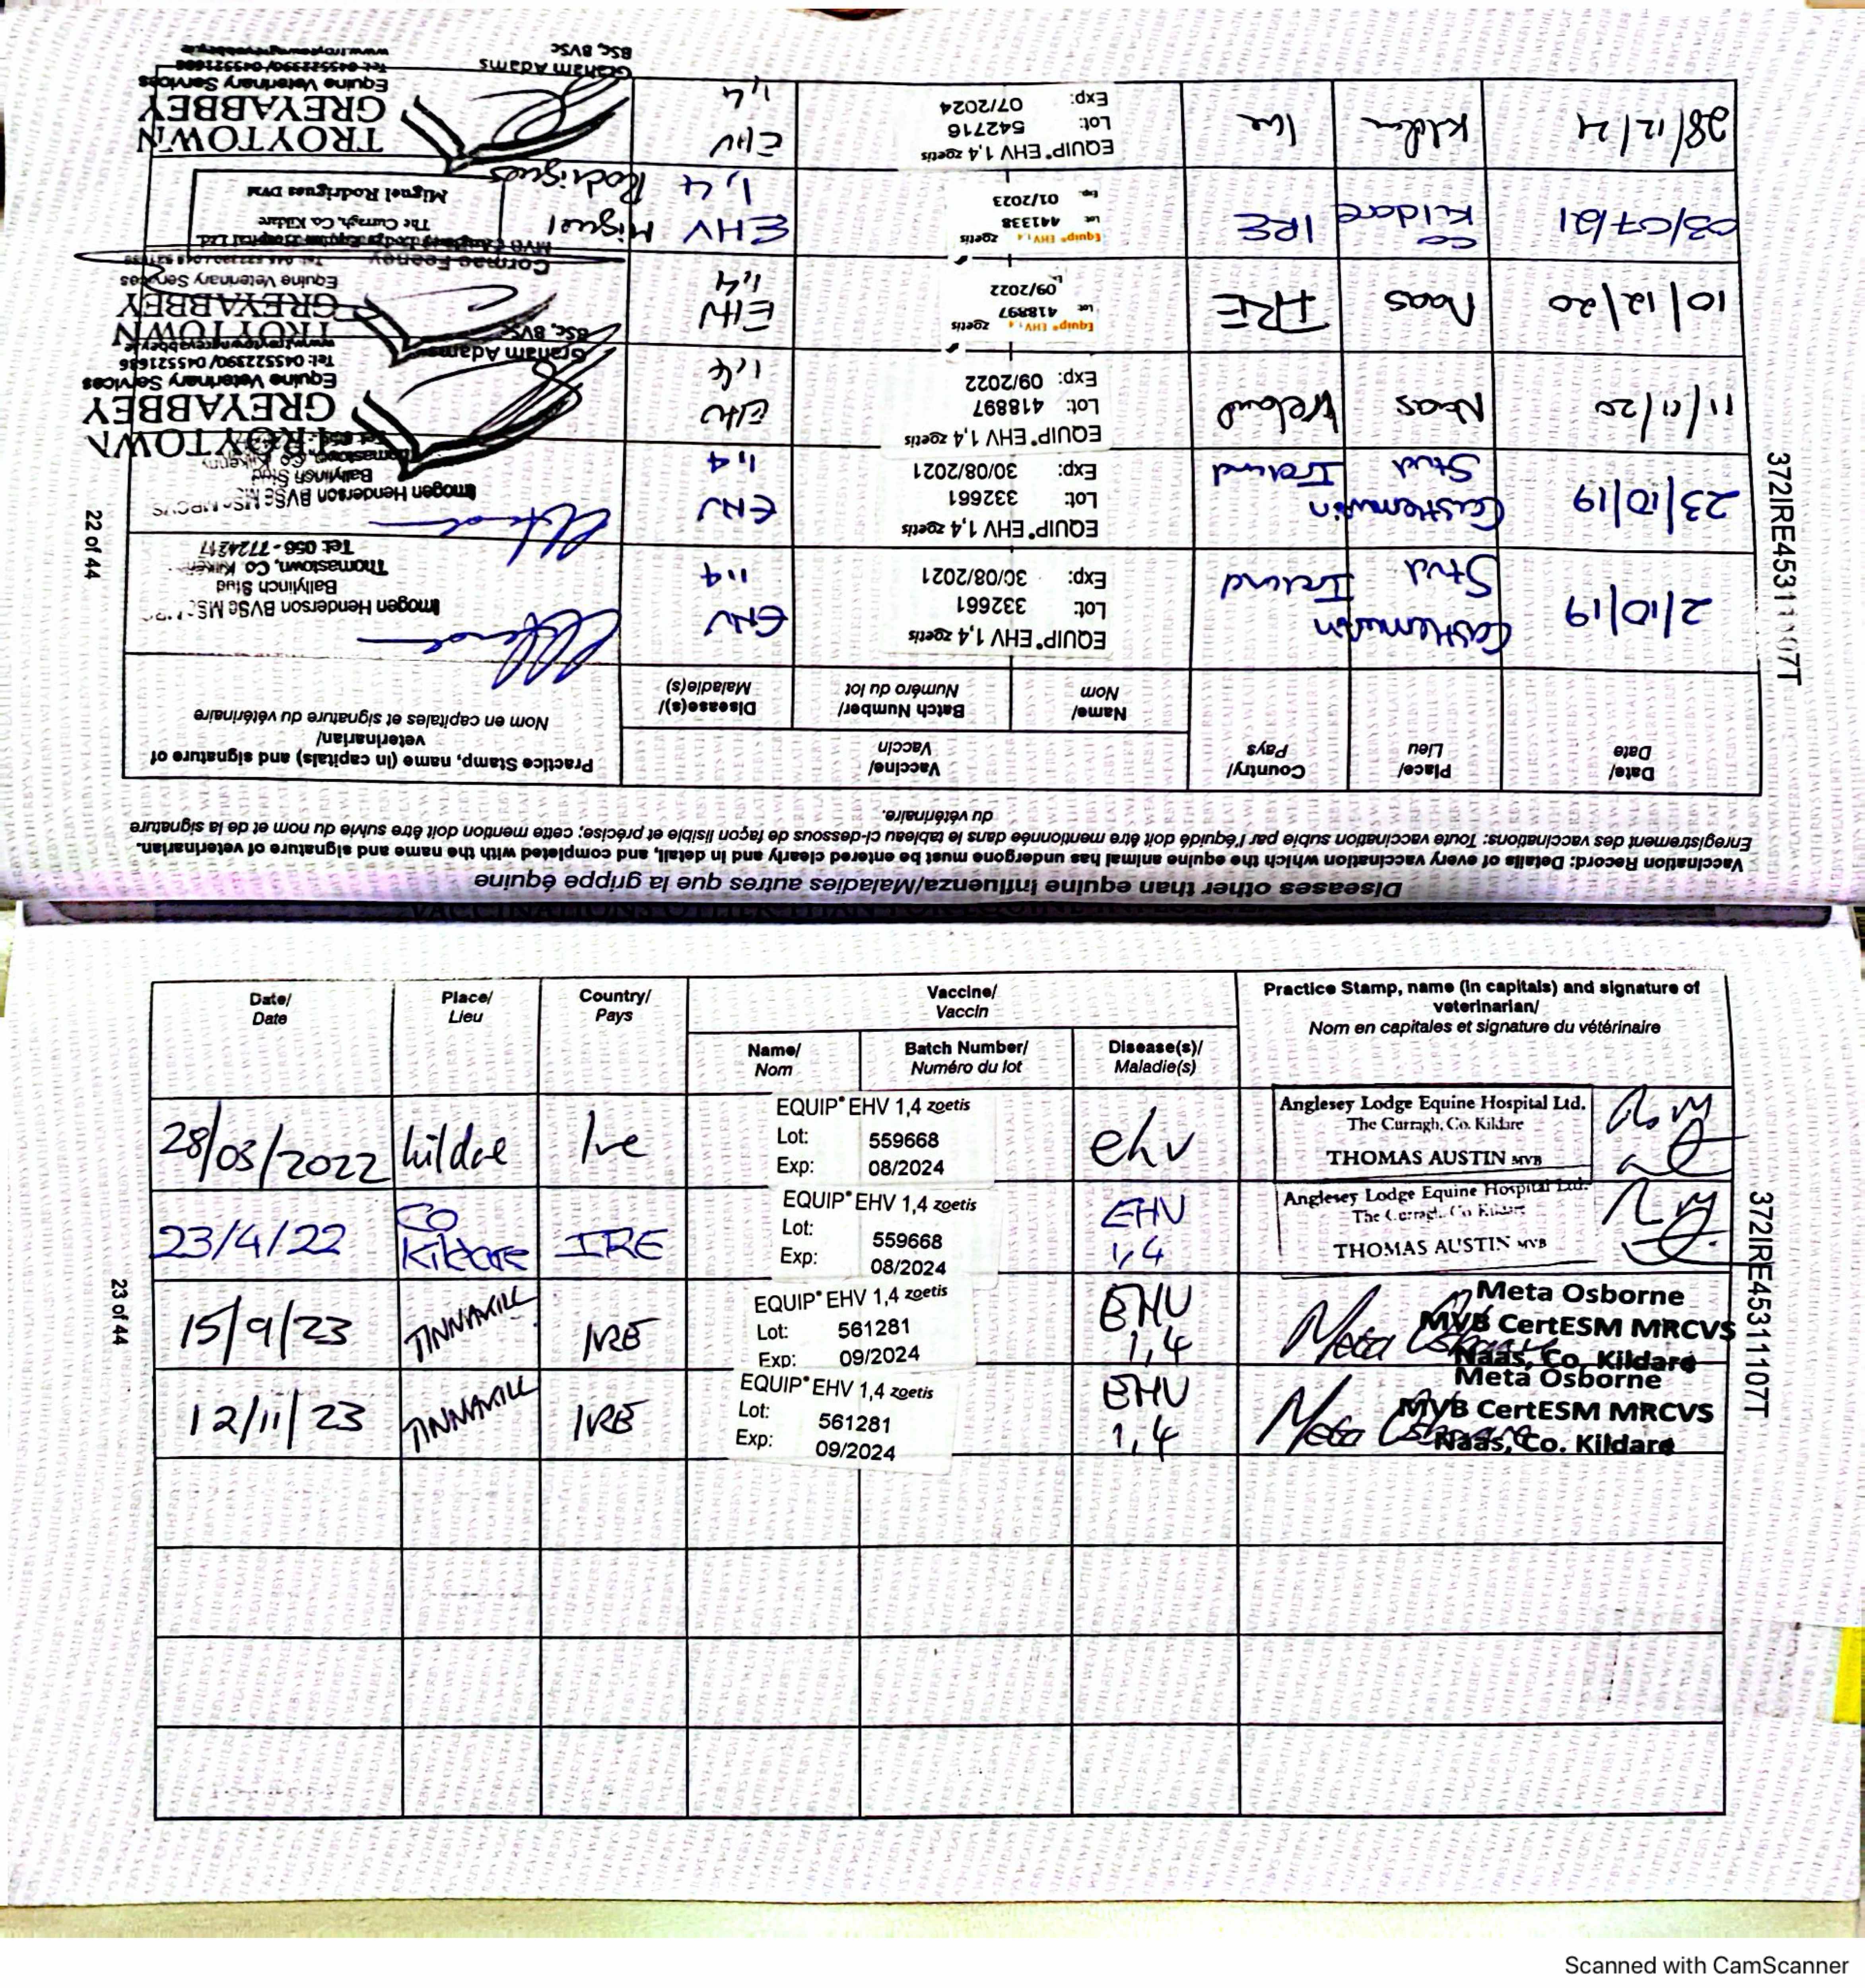 Diseases other than equine influenza/Maladies autres que la grippe équine
Vaccination Record: Details of every vaccination which the equine animal has undergone must be entered clearly and in detail, and completed with the name and signature of veterinarian.
Enregistrement des vaccinations: Toute vaccination subie par l'équidé doit être mentionnée dans le tableau ci-dessous de façon lisible et précise; cette mention doit être suivie du nom et de la signature
du vétérinaire.
Date/
Date
Place/
Lieu
Country/
Pays
Vaccine/
Vaccin
Name/
Nom
Batch Number/
Numéro du lot
Disease(s)/
Maladie(s)
Practice Stamp, name (in capitals) and signature of
veterinarian/
Nom en capitales et signature du vétérinaire
2/10/19
Stud
Ireland
EQUIP® EHV 1,4 zoetis
Lot: 332661
Exp: 30/08/2021
EHV
1,4
Imogen Henderson BVSc
Ballylinch Stud
Thomastown, Co.
Tel: 056 - 7724217
23/10/19
Stud
Ireland
EQUIP® EHV 1,4 zoetis
Lot: 332661
Exp: 30/08/2021
EHV
1,4
Imogen Henderson BVSc
Ballylinch Stud
11/11/20
Naas
Ireland
EQUIP® EHV 1,4 zoetis
Lot: 418897
Exp: 09/2022
EHV
1,4
TROYTOWN
GREYABBEY
Equine Veterinary Services
Tel: 045522390/ 045521686
Graham Adams
BSc, BVSc
10/12/20
Naas
IRE
Equip® EHV 1,4 zoetis
Lot 418897
09/2022
EHV
1,4
TROYTOWN
GREYABBEY
Equine Veterinary Services
Cormac Feeney
MVB
03/07/21
Co
Kildare
IRE
Equip® EHV 1,4 zoetis
Lot 441338
Exp 01/2023
EHV
1,4
Miguel
Rodrigues
The Curragh, Co. Kildare
Miguel Rodrigues DVM
28/12/21
Kildare
Ire
EQUIP® EHV 1,4 zoetis
Lot: 542716
Exp: 07/2024
EHV
1,4
TROYTOWN
GREYABBEY
Equine Veterinary Services
Graham Adams
BSc, BVSc
22 of 44
Date/
Date
Place/
Lieu
Country/
Pays
Vaccine/
Vaccin
Name/
Nom
Batch Number/
Numéro du lot
Disease(s)/
Maladie(s)
Practice Stamp, name (in capitals) and signature of
veterinarian/
Nom en capitales et signature du vétérinaire
28/03/2022
kildare
Ire
EQUIP® EHV 1,4 zoetis
Lot: 559668
Exp: 08/2024
ehv
Anglesey Lodge Equine Hospital Ltd.
The Curragh, Co. Kildare
THOMAS AUSTIN MVB
23/4/22
CO
Kildare
IRE
EQUIP® EHV 1,4 zoetis
Lot: 559668
Exp: 08/2024
EHV
1,4
Anglesey Lodge Equine Hospital Ltd.
The Curragh, Co Kildare
THOMAS AUSTIN MVB
15/9/23
TINNAKILL
IRE
EQUIP® EHV 1,4 zoetis
Lot: 561281
Exp: 09/2024
EHV
1,4
Meta Osborne
MVB CertESM MRCVS
Naas, Co. Kildare
12/11/23
TINNAKILL
IRE
EQUIP® EHV 1,4 zoetis
Lot: 561281
Exp: 09/2024
EHV
1,4
Meta Osborne
MVB CertESM MRCVS
Naas, Co. Kildare
372IRE45311107T
23 of 44
Scanned with CamScanner